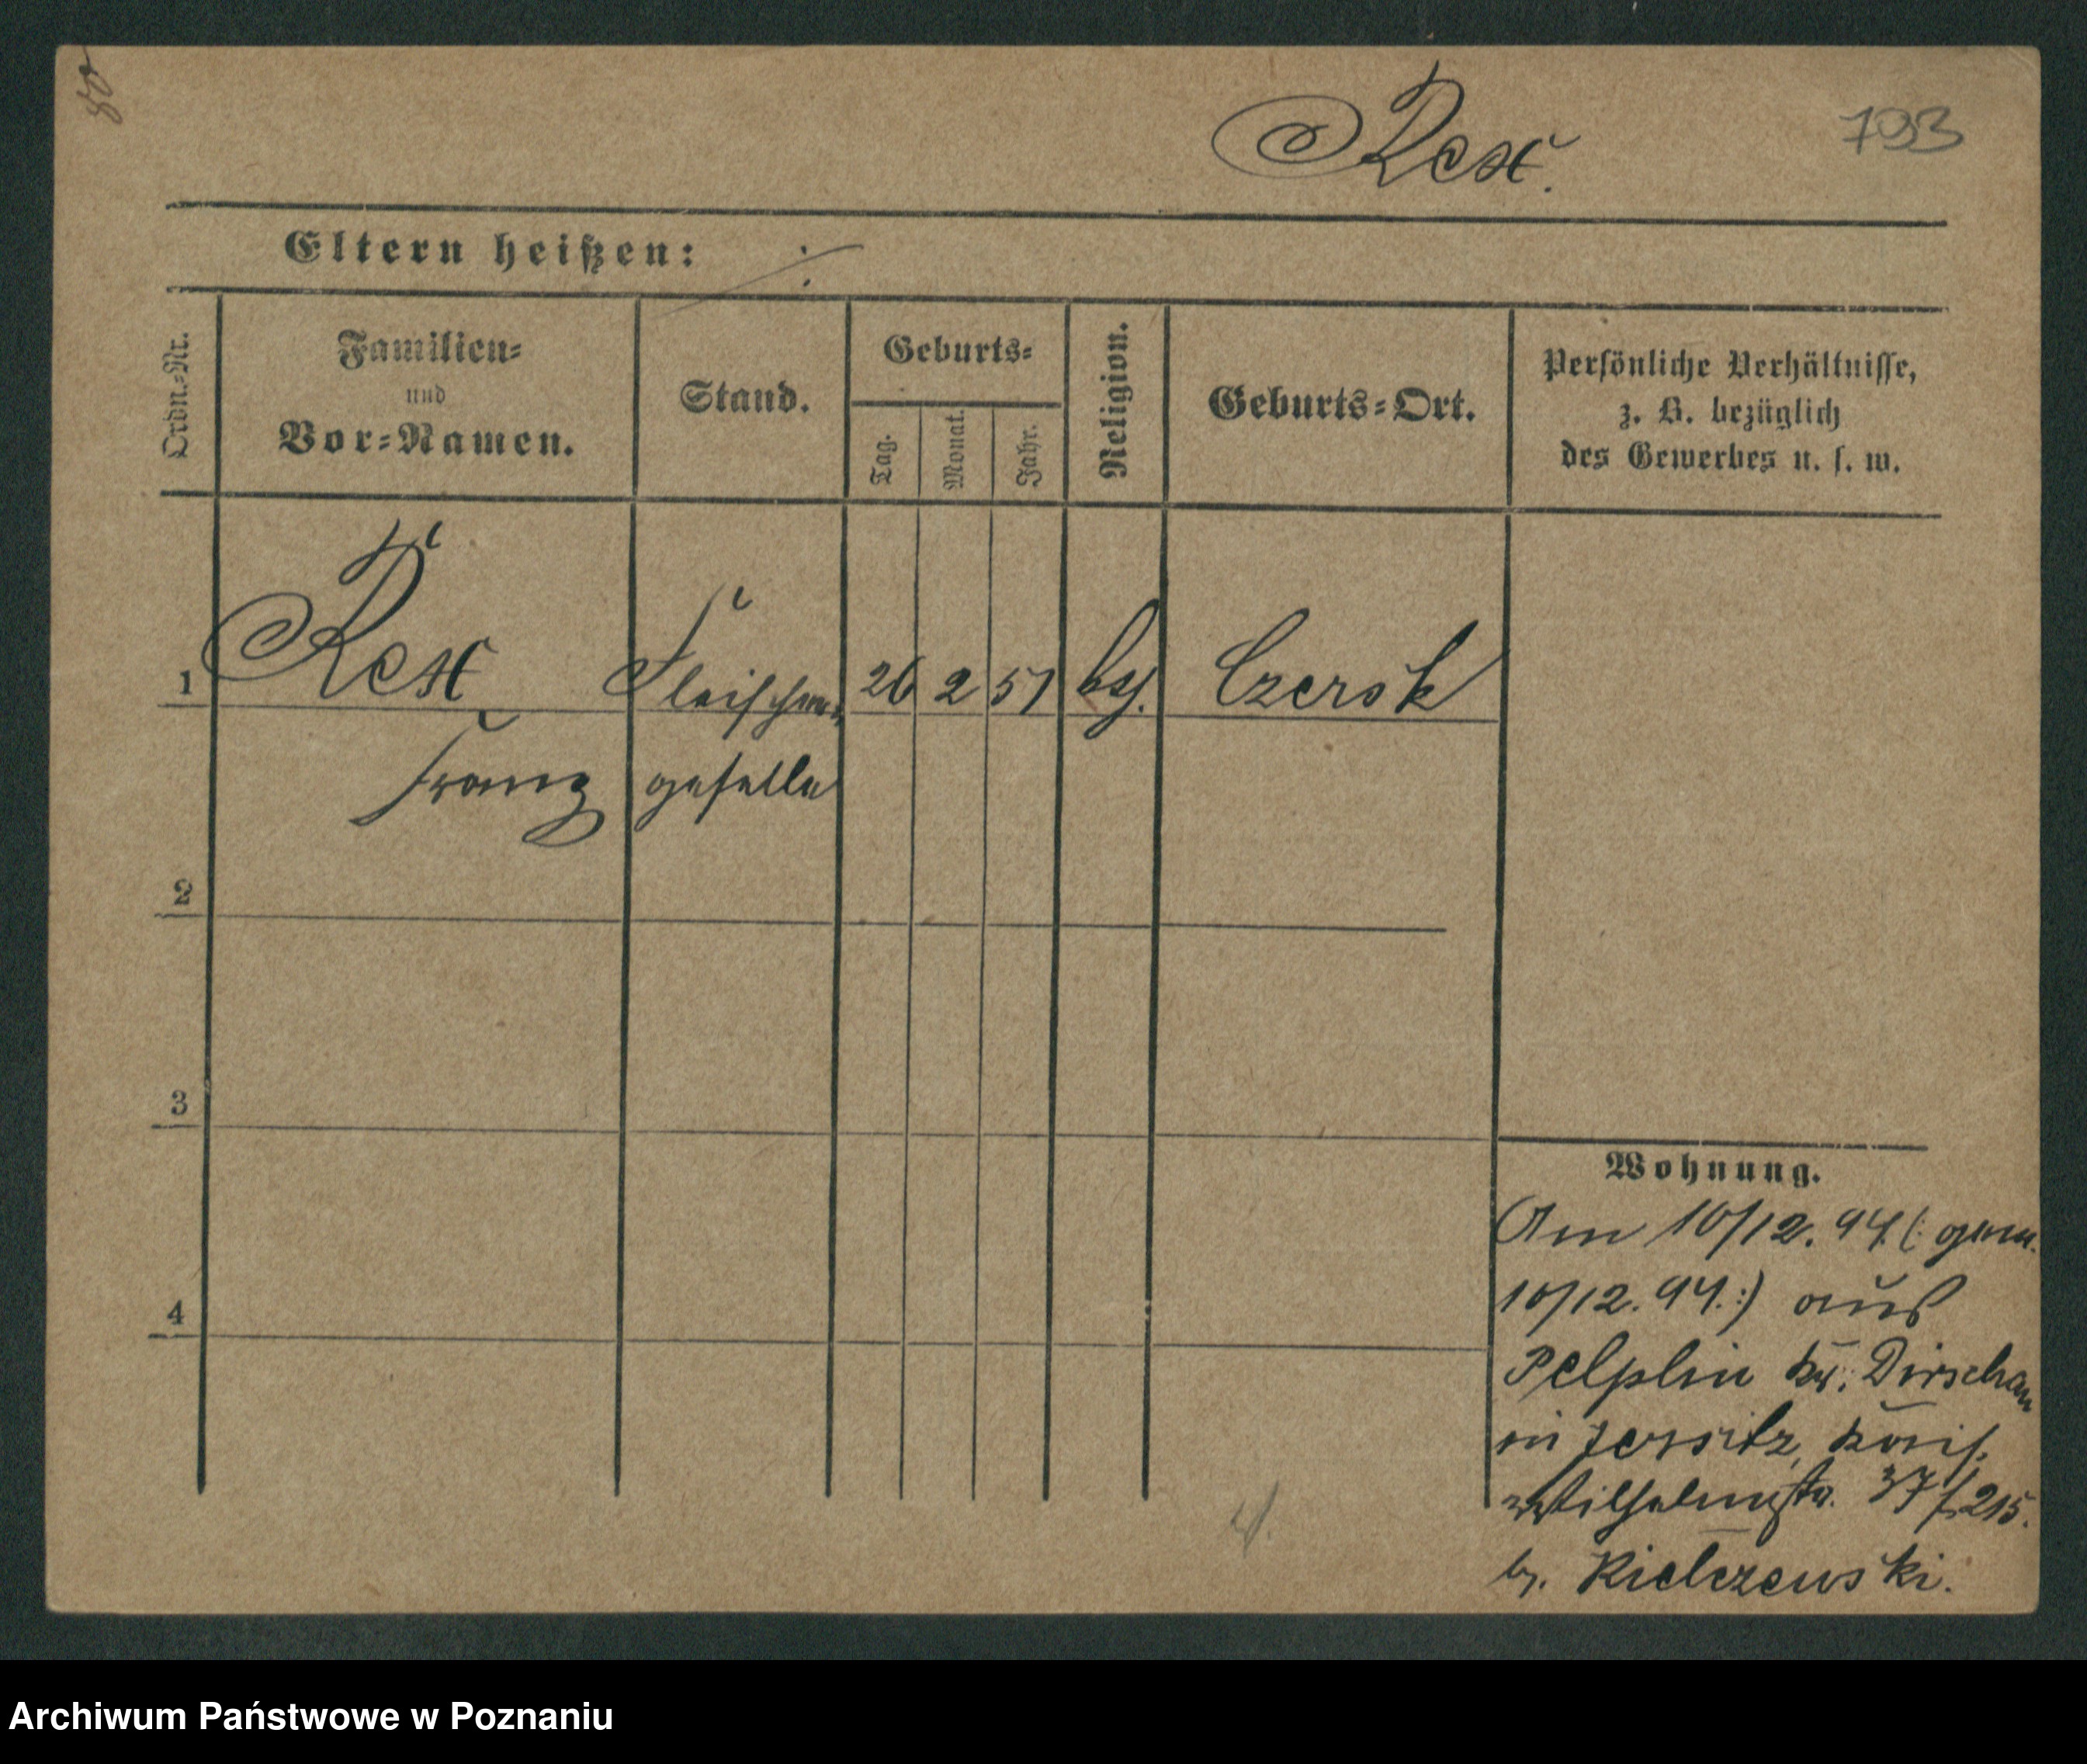 80
Rex.
793
Eltern heißen: ∕.
Ordn.-Nr.
Familien-
und
Vor-Namen.
Stand.
Geburts-
Tag.
Monat.
Jahr.
Religion.
Geburts-Ort.
Persönliche Verhältnisse,
z. B. bezüglich
des Gewerbes u. s. w.
1 Rex Fleischer- 26 2 51 Czersk
Franz geselle
2
3
4
Wohnung.
Am 10/12. 94 (: gem.
10/12. 94.:) aus
Pelplin Kr. Dirschau
in Jersitz,
Wilhelmstr. 37 215.
b. Kielczewski.
Archiwum Państwowe w Poznaniu